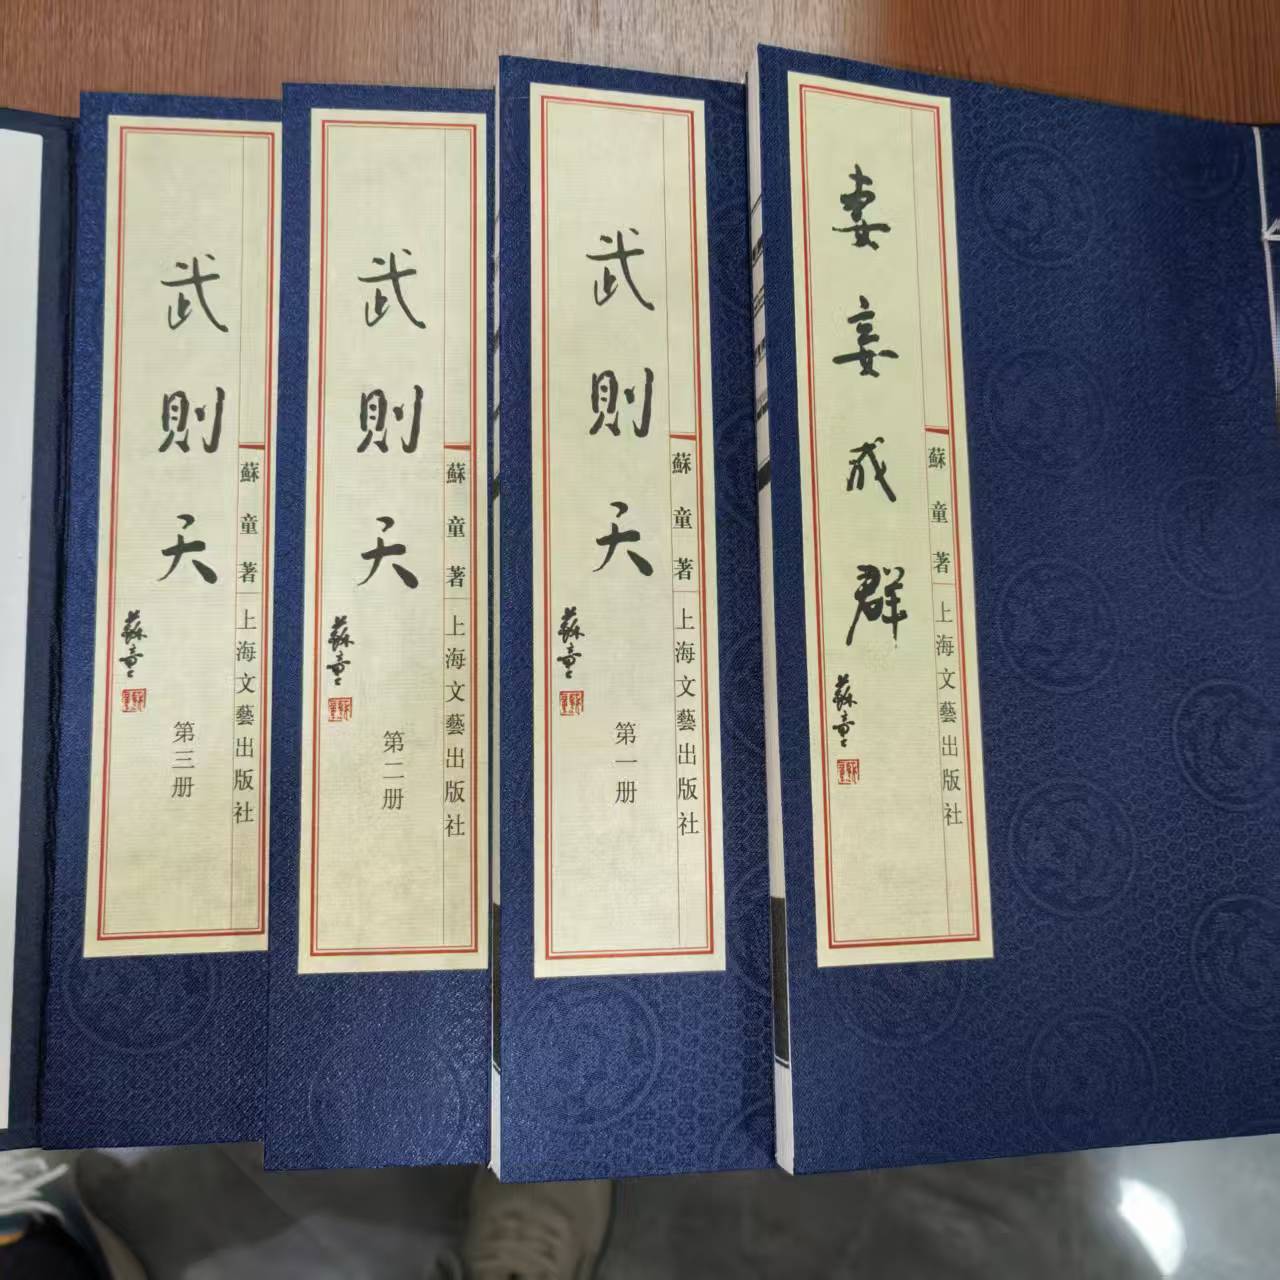 妻妾成群
蘇童著
上海文藝出版社
蘇童
武則天
蘇童著
上海文藝出版社
蘇童
第一册
武則天
蘇童著
上海文藝出版社
蘇童
第二册
武則天
蘇童著
上海文藝出版社
蘇童
第三册